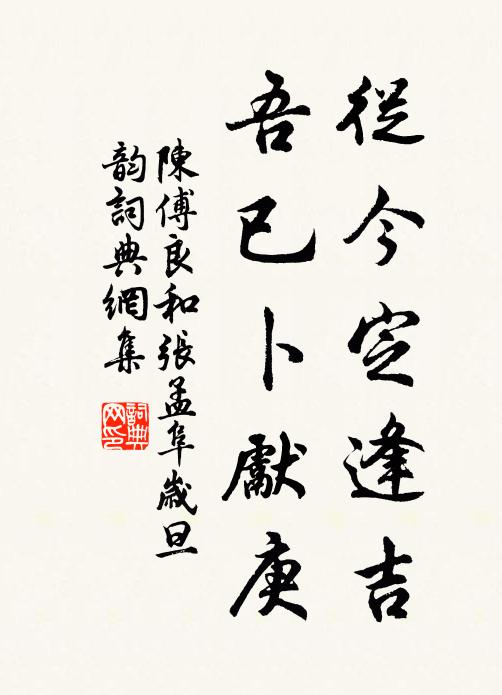 從今定逢吉
吾已卜獻庚
陳傅良和張孟阜歲旦
韻詞典網集
詞典网印